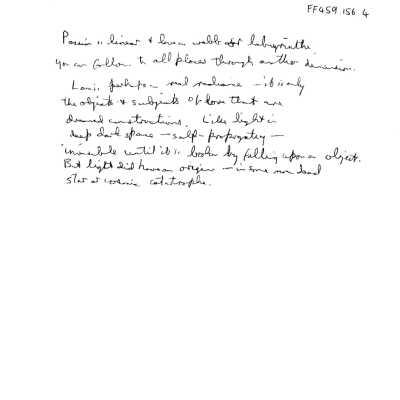 FF459 156 4
is linear & love a webb or labyrinthe.
you can follow to all places through another dimension.
Love is perhaps a real radiance – it is only
the objects & subjects of love that are
dreamed constructions. Like light in
deep dark space – self-propagating –
invisible until it is broken by falling upon an object.
But light did have an origin – in some now dead
star or cosmic catastrophe.